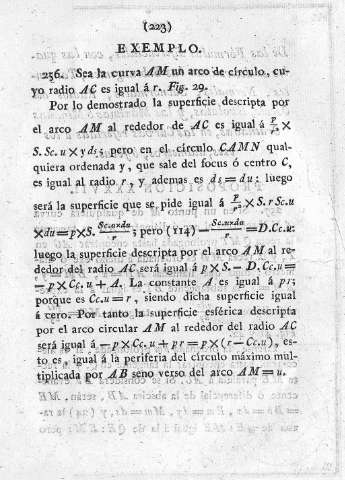 (223)
EXEMPLO.
256. Sea la curva AM un arco de círculo, cu-
yo radio AC es igual á r. Fig. 29.
Por lo demostrado la superficie descripta por
el arco AM al rededor de AC es igual á p/r ×
S. Sc. u × y ds; pero en el círculo CAMN qual-
quiera ordenada y, que sale del focus ó centro C,
es igual al radio r, y ademas es ds = du: luego
será la superficie que se pide igual á p/r × S. r Sc.u
× du = p × S. Sc.u×du/r; pero (114) — Sc.u×du/r = D.Cc.u:
luego la superficie descripta por el arco AM al re-
dedor del radio AC será igual á p × S. — D. Cc.u =
— p × Cc. u + A. La constante A es igual á pr;
porque es Cc.u = r, siendo dicha superficie igual
á cero. Por tanto la superficie esférica descripta
por el arco circular AM al rededor del radio AC
será igual á — p × Cc.u + pr = p × (r — Cc.u), es-
to es, igual á la periferia del círculo máximo mul-
tiplicada por AB seno verso del arco AM = u.